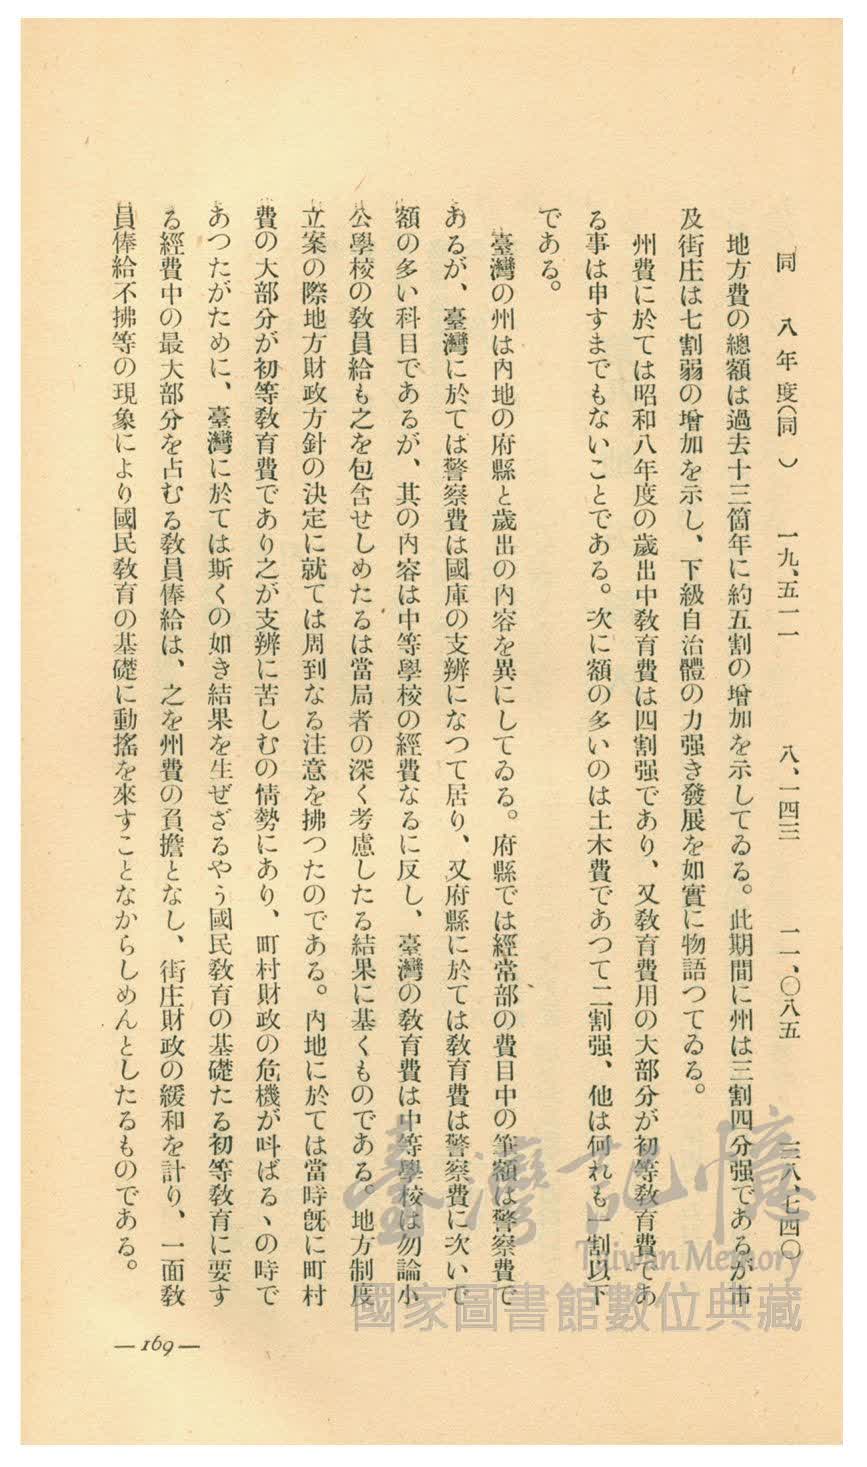 同　八年度(同　)　一九、五一一　八、一四三　一一、〇八五　三八、七四〇
地方費の總額は過去十三箇年に約五割の增加を示してゐる。此期間に州は三割四分强であるが市
及街庄は七割弱の增加を示し、下級自治體の力强き發展を如實に物語つてゐる。
州費に於ては昭和八年度の歲出中敎育費は四割强であり、又敎育費用の大部分が初等敎育費であ
る事は申すまでもないことである。次に額の多いのは土木費であつて二割强、他は何れも一割以下
である。
臺灣の州は內地の府縣と歲出の內容を異にしてゐる。府縣では經常部の費目中の筆額は警察費で
あるが、臺灣に於ては警察費は國庫の支辨になつて居り、又府縣に於ては敎育費は警察費に次いで
額の多い科目であるが、其の內容は中等學校の經費なるに反し、臺灣の敎育費は中等學校は勿論小
公學校の敎員給も之を包含せしめたるは當局者の深く考慮したる結果に基くものである。地方制度
立案の際地方財政方針の決定に就ては周到なる注意を拂つたのである。內地に於ては當時旣に町村
費の大部分が初等敎育費であり之が支辨に苦しむの情勢にあり、町村財政の危機が叫ばるゝの時で
あつたがために、臺灣に於ては斯くの如き結果を生ぜざるやう國民敎育の基礎たる初等敎育に要す
る經費中の最大部分を占むる敎員俸給は、之を州費の負擔となし、街庄財政の緩和を計り、一面敎
員俸給不拂等の現象により國民敎育の基礎に動搖を來すことなからしめんとしたるものである。
—169—
臺灣記憶
Taiwan Memory
國家圖書館數位典藏